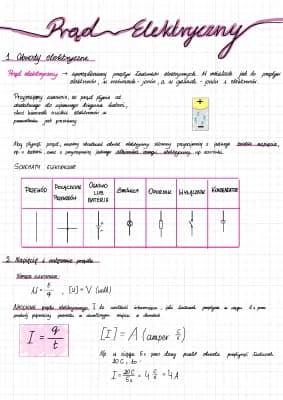 Prąd Elektryczny
1. Obwody elektryczne
Prąd elektryczny → uporządkowany przepływ ładunków elektrycznych. W metalach jest to przepływ
elektronów, w roztworach - jonów, a w gazach - jonów i elektronów.
Przyjmujemy umownie, że prąd płynie od
dodatniego do ujemnego bieguna baterii,
choć kierunek ruchu elektronów w
przewodniku jest przeciwny
Aby płynął prąd, musimy zbudować obwód elektryczny złożony przynajmniej z jednego źródła napięcia,
np. z baterii, oraz z przynajmniej jednego odbiornika energii elektrycznej np. żarówki.
Schematy elektryczne
PRZEWÓD
POŁĄCZENIE PRZEWODÓW
OGNIWO LUB BATERIA
ŻARÓWKA
OPORNIK
WYŁĄCZNIK
KONDENSATOR
2. Napięcie i natężenie prądu
Napięcie elektryczne:
, [U] = V (wolt)
Natężenie prądu elektrycznego, I to wielkość informująca, jaki ładunek przepływa w ciągu 1 s przez
I = q/t
[I] = A (amper C/s)
Np. w ciągu 5s przez dany punkt obwodu przepłynął ładunek
20 C, to:
I = 20C/5s = 4 C/s = 4A